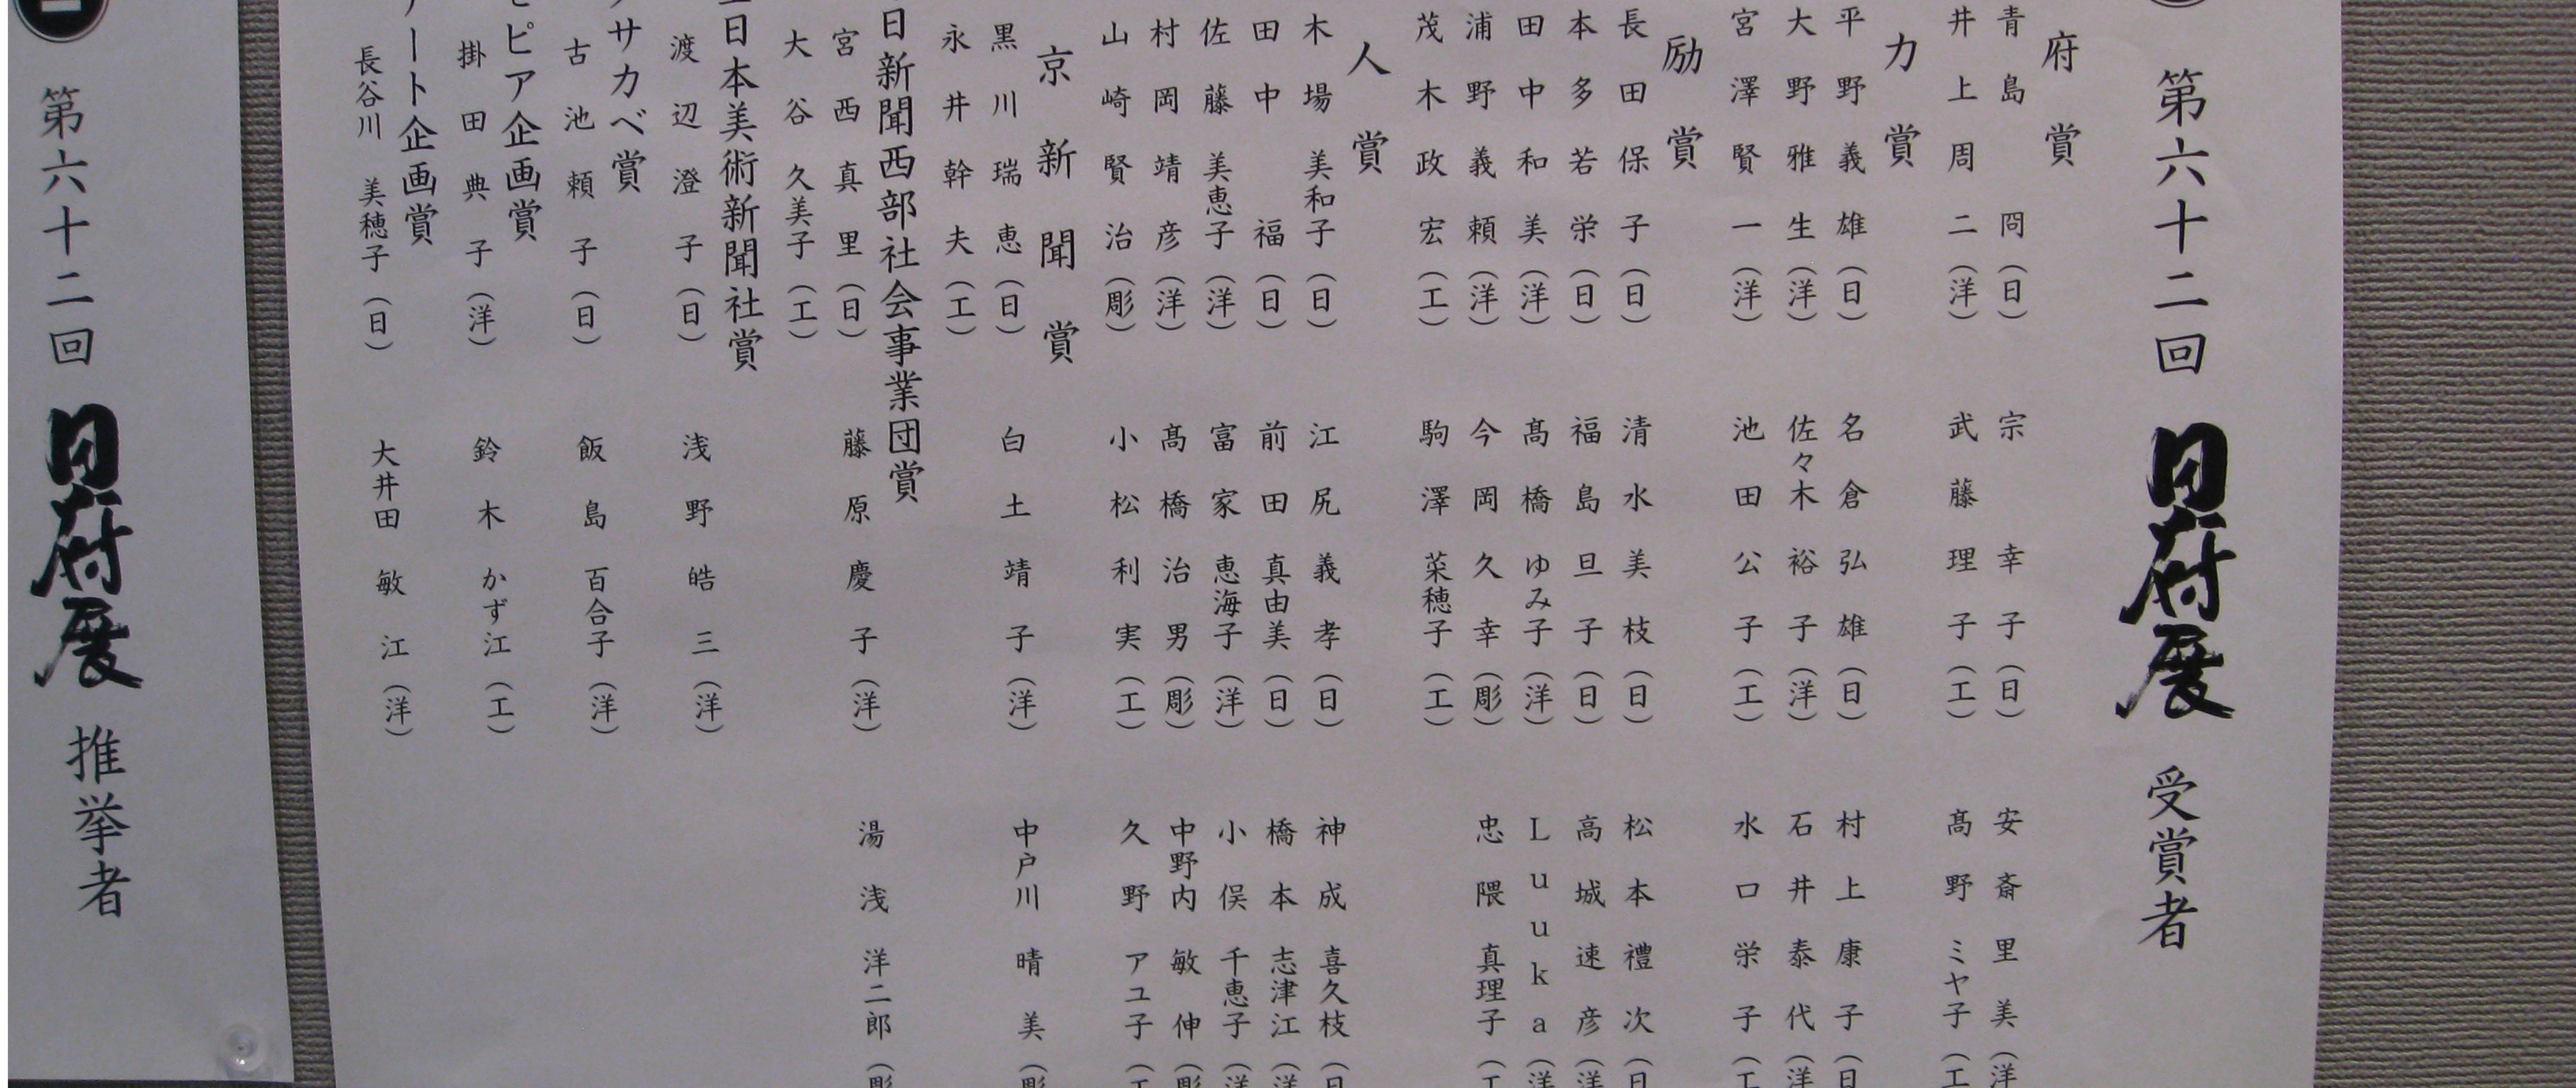 第六十二回 日府展 受賞者
府賞
青島冏(日) 宗幸子(日) 安斎里美(洋
井上周二(洋) 武藤理子(工) 髙野ミヤ子(工
力賞
平野義雄(日) 名倉弘雄(日) 村上康子(日
大野雅生(洋) 佐々木裕子(洋) 石井泰代(洋
宮澤賢一(洋) 池田公子(工) 水口栄子(工
励賞
長田保子(日) 清水美枝(日) 松本禮次(日
本多若栄(日) 福島旦子(日) 高城速彦(洋
田中和美(洋) 髙橋ゆみ子(洋) Luuka(洋
浦野義頼(洋) 今岡久幸(彫) 忠隈真理子(工
茂木政宏(工) 駒澤菜穂子(工)
人賞
木場美和子(日) 江尻義孝(日) 神成喜久枝(日
田中福(日) 前田真由美(日) 橋本志津江(洋
佐藤美恵子(洋) 富家恵海子(洋) 小俣千恵子(洋
村岡靖彦(洋) 髙橋治男(彫) 中野内敏伸(彫
山崎賢治(彫) 小松利実(工) 久野アユ子(工
京新聞賞
黒川瑞恵(日) 白土靖子(洋) 中戸川晴美(彫
永井幹夫(工)
日新聞西部社会事業団賞
宮西真里(日) 藤原慶子(洋) 湯浅洋二郎(彫
大谷久美子(工)
日本美術新聞社賞
渡辺澄子(日) 浅野皓三(洋)
サカベ賞
古池頼子(日) 飯島百合子(洋)
ピア企画賞
掛田典子(洋) 鈴木かず江(工)
ート企画賞
長谷川美穂子(日) 大井田敏江(洋)
第六十二回 日府展 推挙者